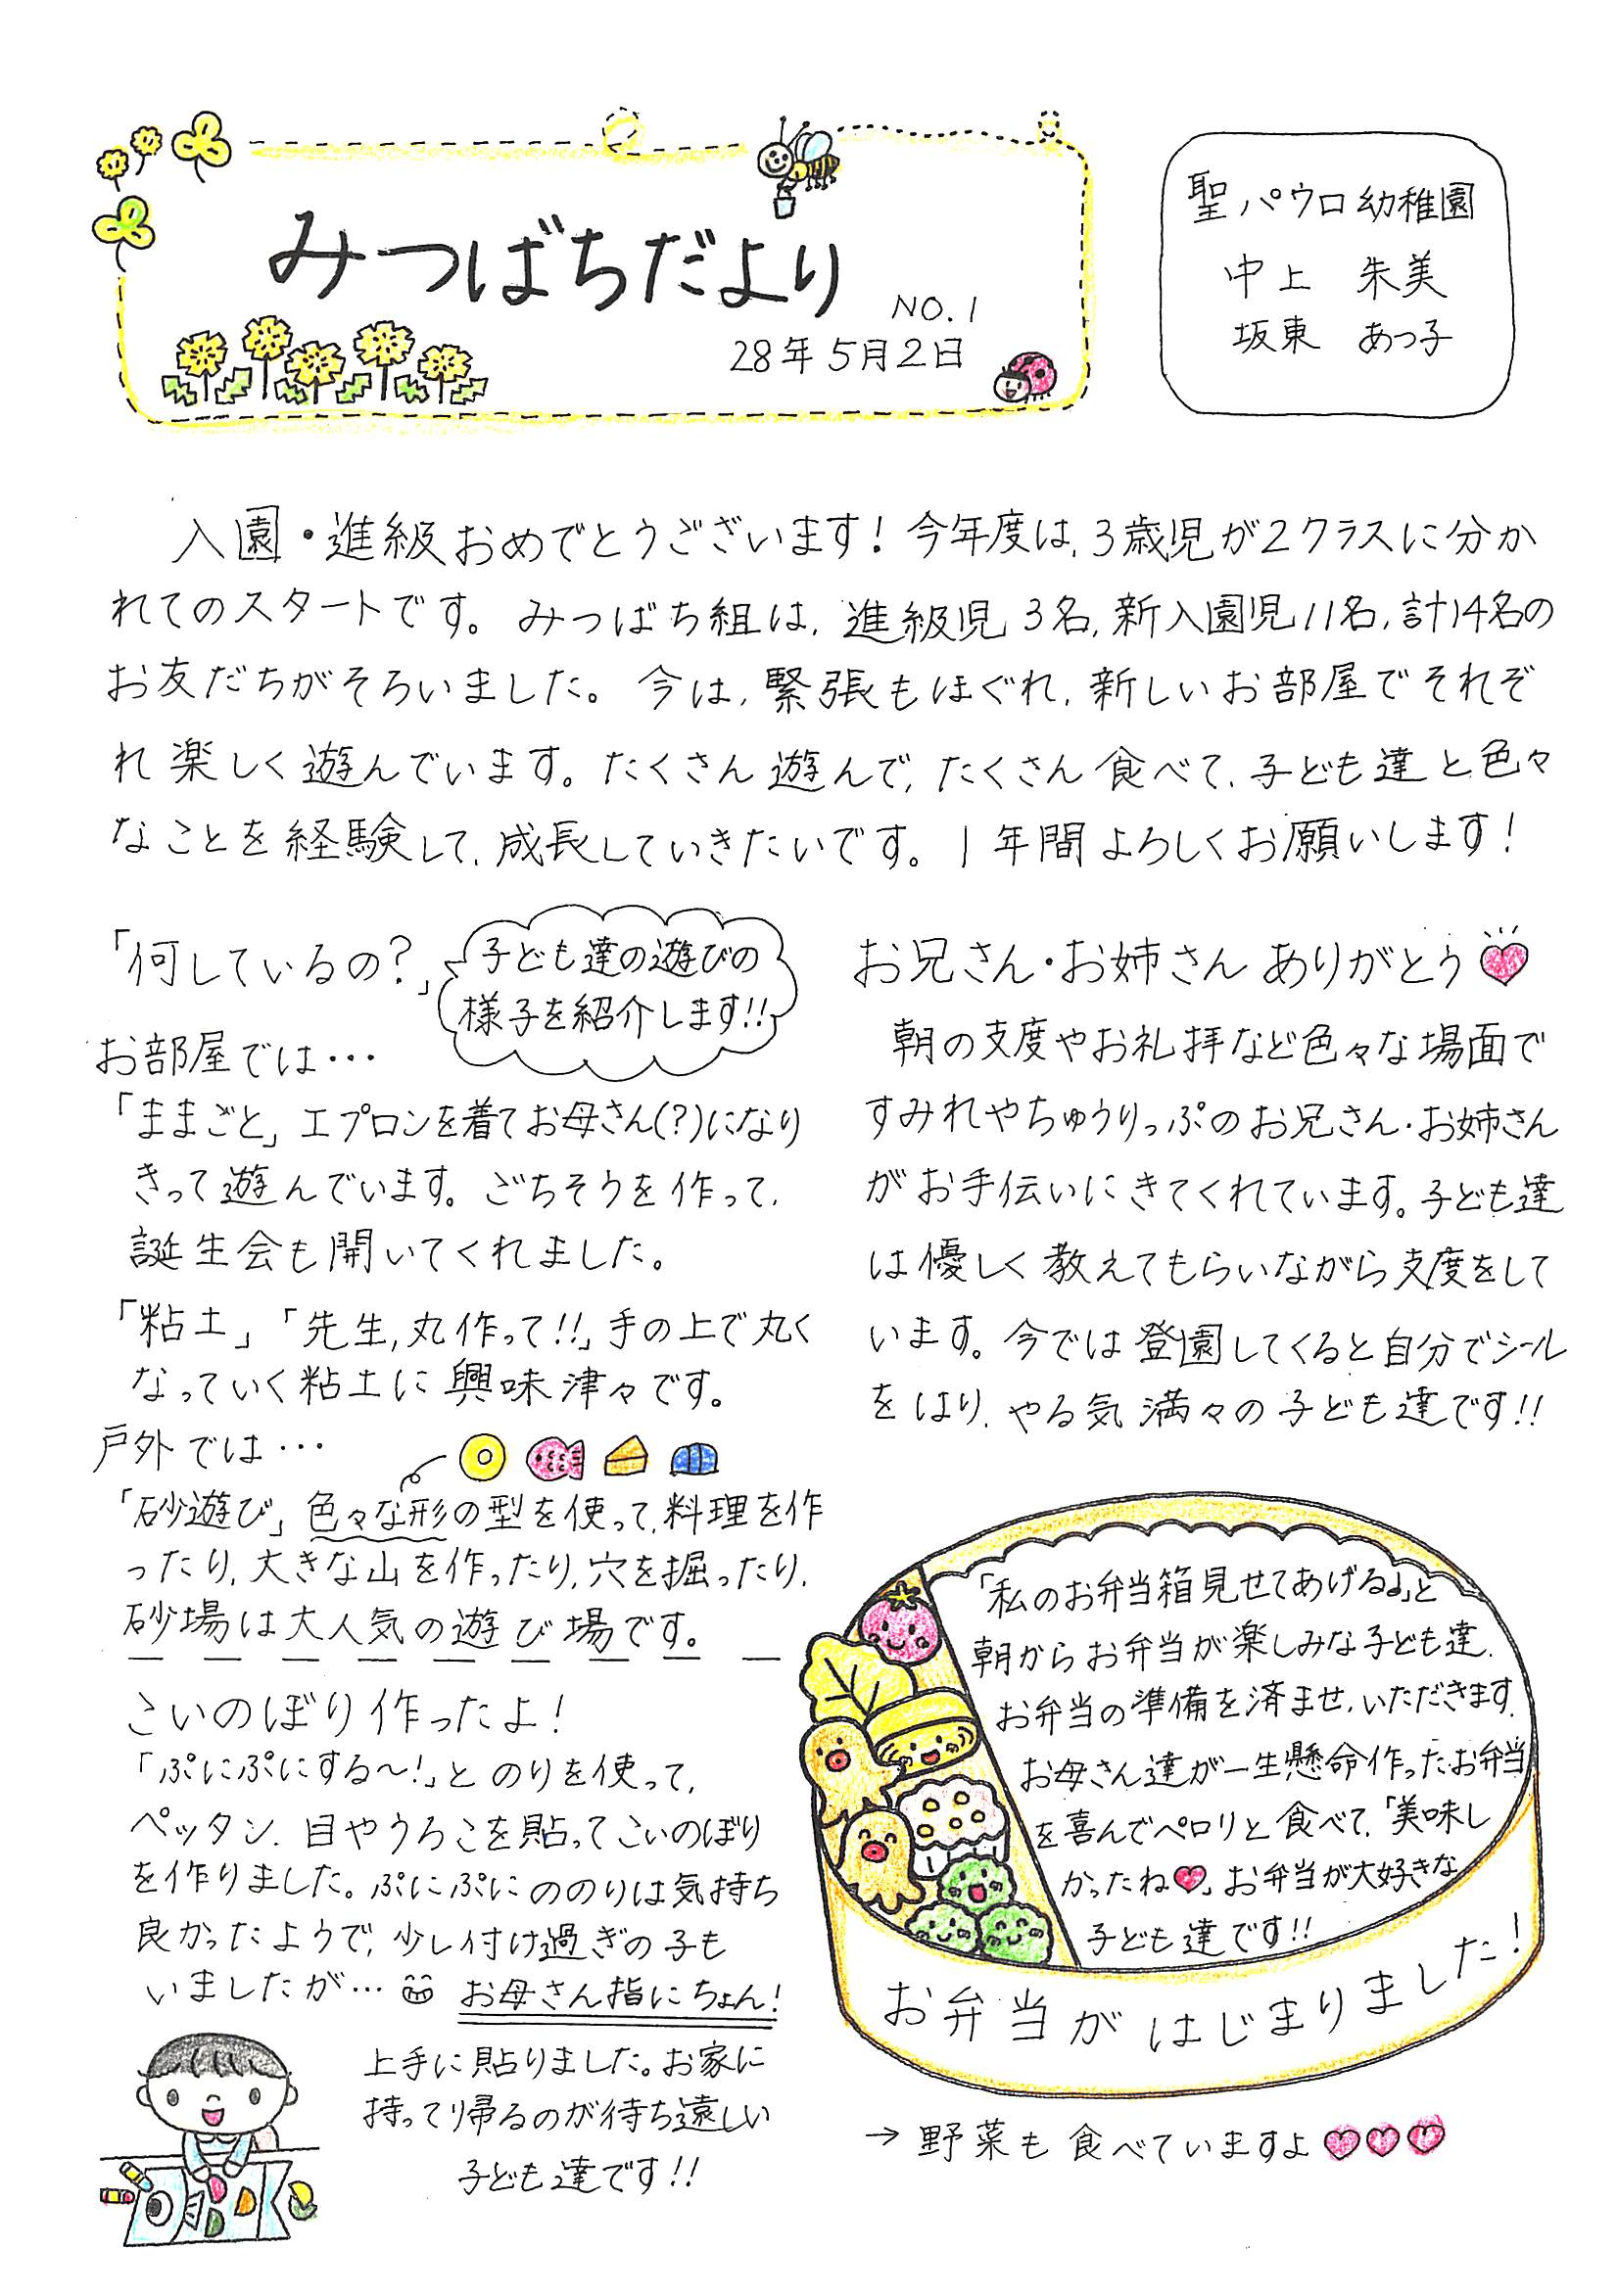 みつばちだより
NO.1
28年5月2日
聖パウロ幼稚園
中上 朱美
坂東 あつ子
入園・進級おめでとうございます！今年度は,3歳児が2クラスに分か
れてのスタートです。みつばち組は,進級児3名,新入園児11名,計14名の
お友だちがそろいました。今は,緊張もほぐれ,新しいお部屋でそれぞ
れ楽しく遊んでいます。たくさん遊んで,たくさん食べて,子ども達と色々
なことを経験して,成長していきたいです。1年間よろしくお願いします！
「何しているの？」
子ども達の遊びの
様子を紹介します!!
お部屋では…
「ままごと」エプロンを着てお母さん(?)になり
きって遊んでいます。ごちそうを作って,
誕生会も開いてくれました。
「粘土」「先生,丸作って!!」手の上で丸く
なっていく粘土に興味津々です。
戸外では…
「砂遊び」色々な形の型を使って,料理を作
ったり,大きな山を作ったり,穴を掘ったり,
砂場は大人気の遊び場です。
こいのぼり作ったよ！
「ぷにぷにする〜！」とのりを使って,
ペッタン.目やうろこを貼ってこいのぼり
を作りました。ぷにぷにののりは気持ち
良かったようで,少し付け過ぎの子も
いましたが…お母さん指にちょん！
上手に貼りました。お家に
持って帰るのが待ち遠しい
子ども達です!!
お兄さん・お姉さんありがとう♥
朝の支度やお礼拝など色々な場面で
すみれやちゅうりっぷのお兄さん・お姉さん
がお手伝いにきてくれています。子ども達
は優しく教えてもらいながら支度をして
います。今では登園してくると自分でシール
をはり,やる気満々の子ども達です!!
「私のお弁当箱見せてあげる♩」と
朝からお弁当が楽しみな子ども達.
お弁当の準備を済ませ,いただきます.
お母さん達が一生懸命作ったお弁当
を喜んでペロリと食べて,「美味し
かったね♥」お弁当が大好きな
子ども達です!!
お弁当がはじまりました！
→野菜も食べていますよ♥♥♥